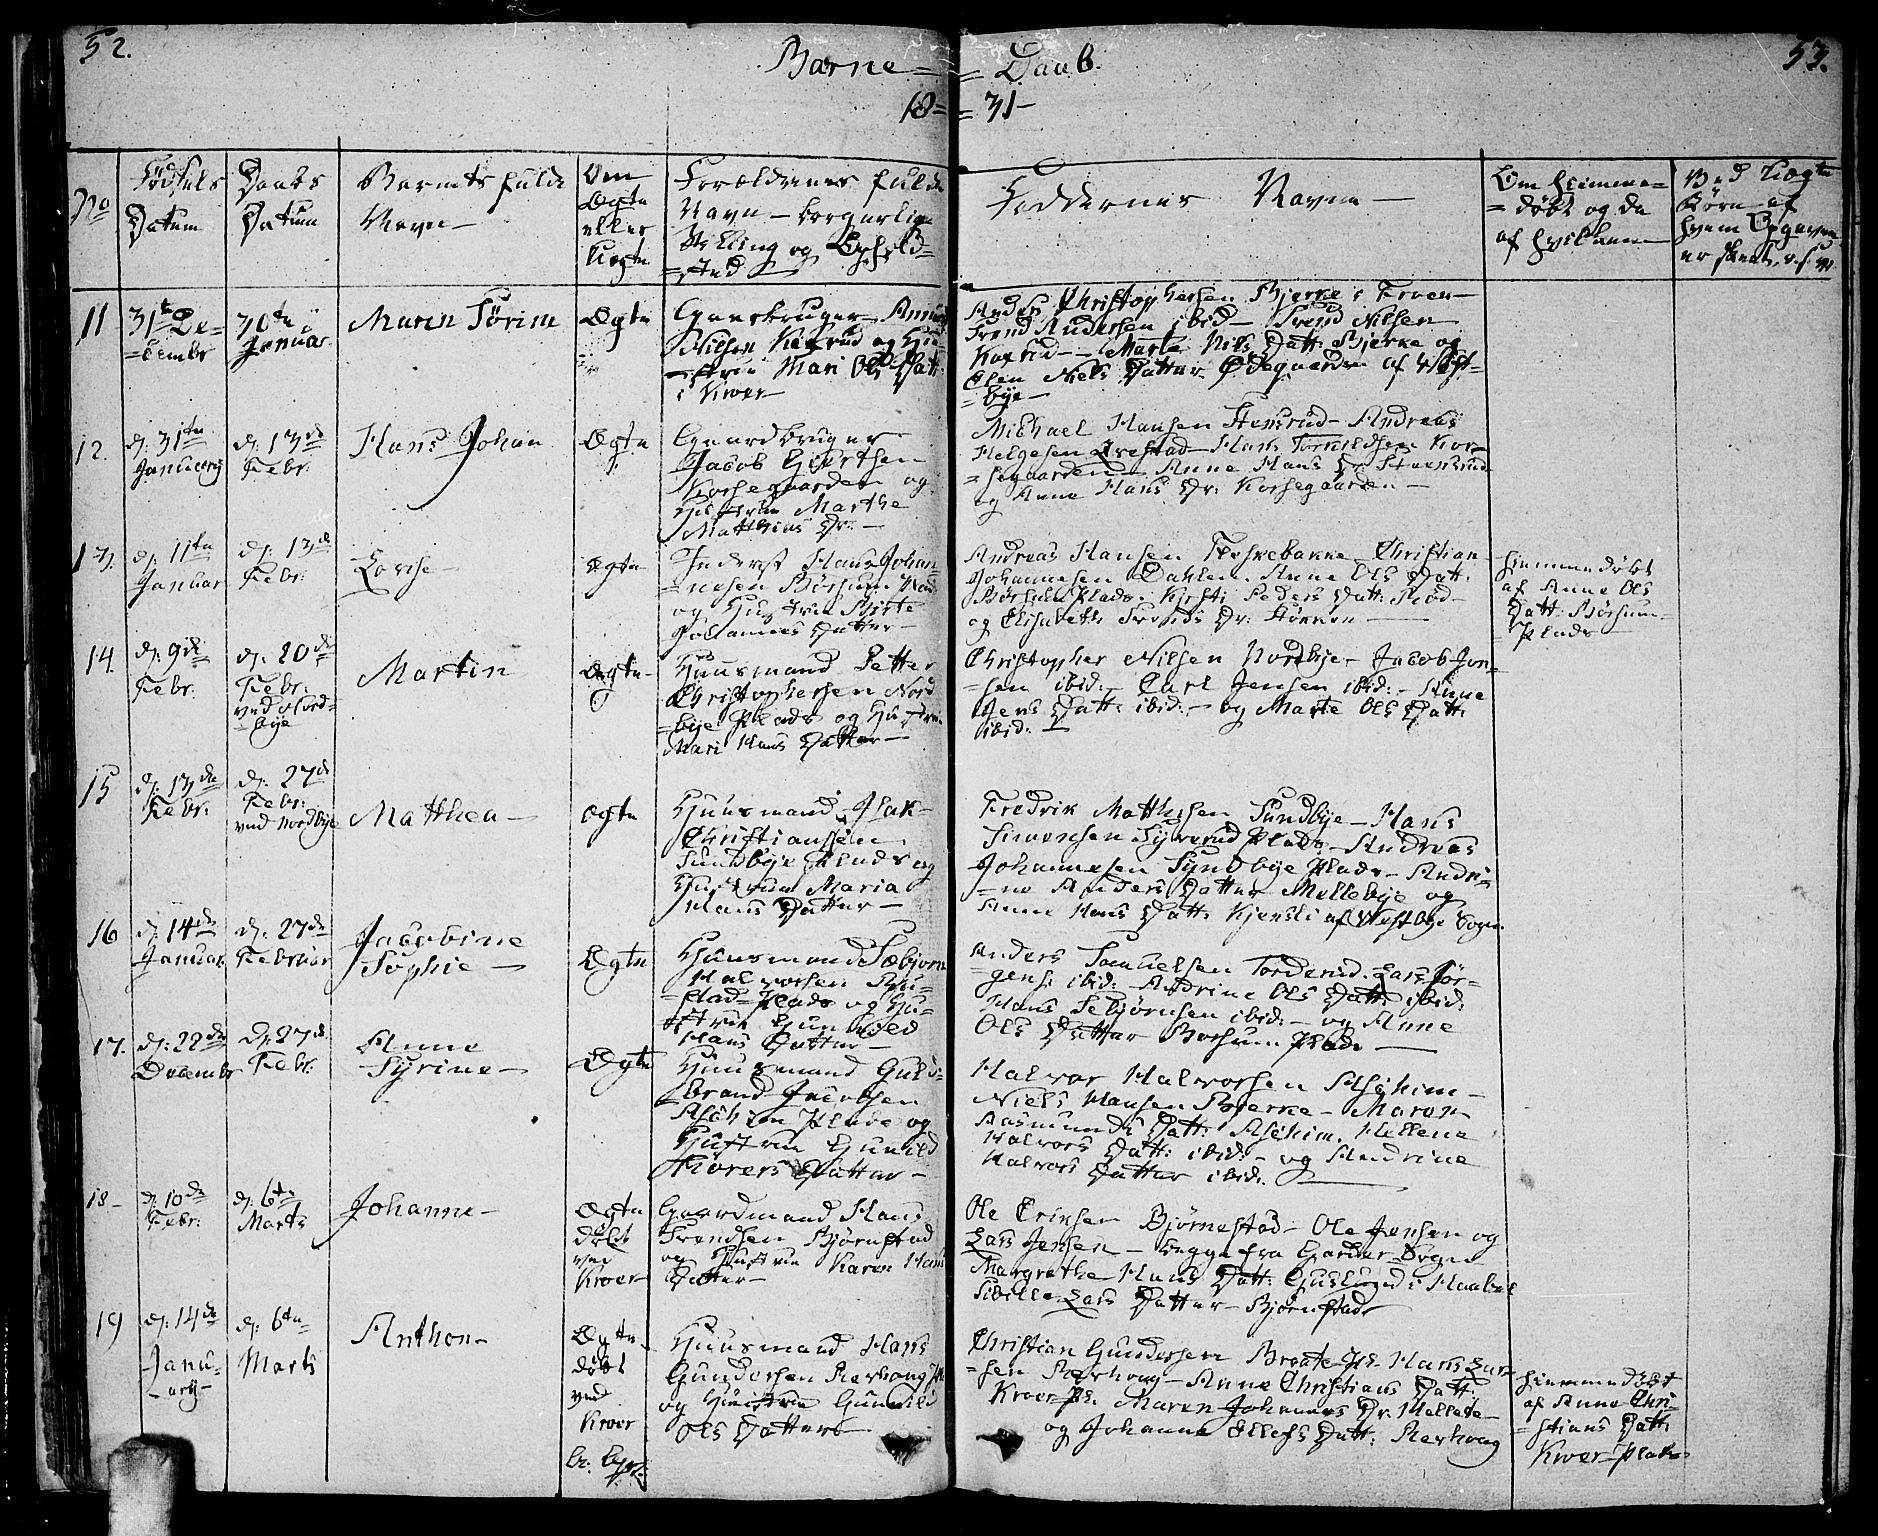 52.
Barne = = Daab.
53.
18 = = 31 -
No
Fødsels Datum
Daabs Datum
Barnets fulde Navn -
Om Ægte eller Uægte
Forældrenes fulde
Navn - borgerlige
Stilling og Ophold=
=sted
Faddernes Navne -
Om hiemme=
=døbt og da
af hvilken
Ved Uægte
Børn af
hvem Opgaven
er skeet
11
31te De=
=cember
30te
Januar
Maren Sørine
Ægte
Gaardbruger
Nilsen Kaxrud og Hu=
=strue Mari Ols Datt:
i Kroer
Anders Christophersen Bjerke i Froen -
Trond Andersen ibid - Svend Nilsen
Kaxrud - Marte Nils Datt: Bjerke og
Elen Niels Datter Ødegaarden af West=
=bye -
12.
d: 31te
Januarij
d: 13de
Febr:
Hans Johan
Ægte
Gaardbruger
Jacob Gjertsen
Korsegaarden og
Hustrue Marthe
Matthias Dr: -
Michael Hansen Stensrud - Andreas
Helgesen - Hans Tormildsen Kor=
=segaarden - Anne Hans Dr Steensrud
og Anne Hans Dr: Korsegaarden -
13.
d: 11te
Januar
d: 13de
Febr:
Lovise -
Ægte
Inderst Hans Johan=
=nesen Børsum Plads
og Hustrue Birte
Johannes Datter -
Andreas Hansen - Christian
Johannesen Dahlen. Anne Ols Datt:
Børsum Plads. Kjersti Peders Datt:
og Elisabeth Dr:
hiemmedøbt
af Anne Ols
Datt: Børsum=
=Plads
14.
d: 9de
Febr:
d: 20de
Febr:
ved Nord=
=bye
Martin
Ægte
Huusmand Petter
Christophersen Nord
=bye Plads og Hustrue
Mari Hans Datter -
Christopher Nilsen Nordbye - Jacob Jon=
=sen ibid: - Carl Jensen ibid: - Anne
Jens Datt: ibid: - og Marte Ols Datt:
ibid: -
15
d: 13de
Febr:
d: 27de
Febr:
ved Nordbye
Matthea -
Ægte
Huusmand Isak
Christiansen
Sundbye Plads og
Hustrue Maria
Hans Datter -
Fredrik Matthisen Sundbye - Hans
Simensen Syverud Plads - Andreas
Johannesen Sundbye Plads - Andri=
=ne Anders Datter Mellebye og
Anne Hans Datt: Kjensli af Westbye Sogn.
16
d: 14de
Januar
d: 27de
Februar
Jacobine
Sophie -
Ægte
Huusmand Sæbjørn
Halvorsen
Plads og Hu=
=strue Gunhild
Hans Datter -
Anders Samuelsen Lars Jør=
gens: ibid: Andrine Ols Datt: ibid:
Hans Sebjørnsen ibid: - og Anne
Ols Datter Borsum Plads -
17.
d: 22de
December
d: 27de
Febr:
Anne
Syrine -
Ægte
Huusmand Guld=
brand Jacobsen
Aschim Plads og
Hustrue Gunild
Datter -
Halvor Halvorsen Aschim -
Niels Hansen Bjerke - Maren
Aasmunds Datt: Aschim. Hellene
Halvors Datt: ibid: - og Andrine
Halvors Datter ibid: -
18 -
d: 10de
Febr:
d: 6te
Marts
Johanne -
Ægte
døbt
ved
Kroer
Gaardmand Hans
Trondsen Bjørnstad
og Hustrue Karen Hans
Datter -
Ole Eriksen Bjørnestad - Ole Jensen og
Lars Jensen - begge fra Garder Sogn
Margrethe Hans Datt:
Sibille Lars Datter - Bjørnstad
19
d: 14de
Janu=
=arij
d: 6te
Marts
Anthon -
Ægte
døbt
ved
Kroer
Huusmand Hans
Gundersen Rerhoug Pl:
og Huustrue Gunnild
Ols Datter
Christian Gundersen Braate Ps. Hans Lar=
=sen Rerhoug - Anne Christians Datt:
Kroer Ps. Maren Johannes Dr. Hellete -
og Johanne Ellefs Datt: Rerhoug
hiemmedøbt
af Anne Chri=
=stians Datt:
Kroer Plads